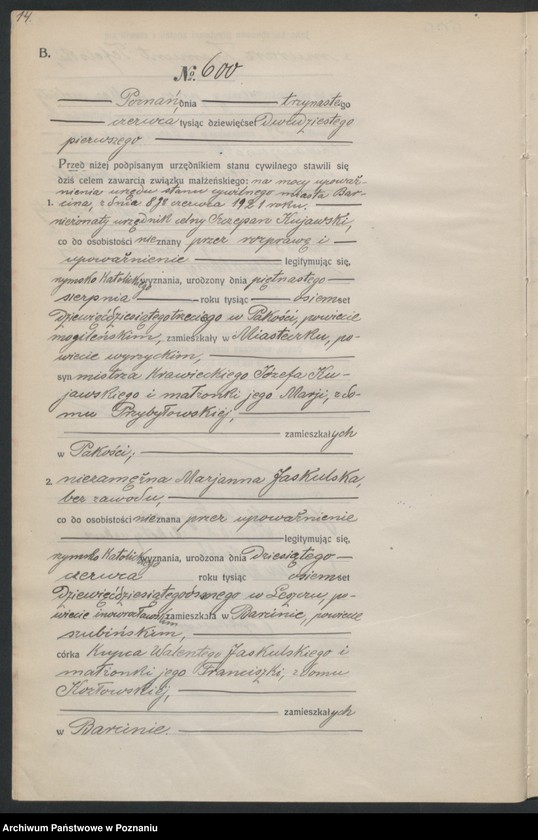 14.
B.
№ 600
Poznań, dnia trzynastego
czerwca tysiąc dziewięćset dwudziestego
pierwszego
Przed niżej podpisanym urzędnikiem stanu cywilnego stawili się
dziś celem zawarcia związku małżeńskiego: na mocy upoważ-
nienia urzędu stanu cywilnego miasta Bar-
cina, z dnia 8go czerwca 1921 roku.
1. nieżonaty urzędnik celny Szczepan Kujawski,
co do osobistości nieznany przez rozprawę i
upoważnienie legitymując się,
rzymsko katolickiego wyznania, urodzony dnia piętnastego
sierpnia roku tysiąc osiemset
dziewięćdziesiątego trzeciego w Pakości, powiecie
mogileńskim, zamieszkały w Miasteczku, po-
wiecie wyrzyskim,
syn mistrza krawieckiego Józefa Ku-
jawskiego i małżonki jego Marji, z do-
mu Przybyłowskiej,
zamieszkałych
w Pakości;
2. niezamężna Marjanna Jaskulska,
bez zawodu,
co do osobistości nieznana przez upoważnienie
legitymując się,
rzymsko katolickiego wyznania, urodzona dnia dziesiątego
czerwca roku tysiąc osiemset
dziewięćdziesiątego ósmego w powiecie
inowrocławskim zamieszkała w Barcinie, powiecie
szubińskim,
córka kupca Walentego Jaskulskiego i
małżonki jego Franciszki, z domu
Kozłowskiej,
zamieszkałych
w Barcinie.
Archiwum Państwowe w Poznaniu